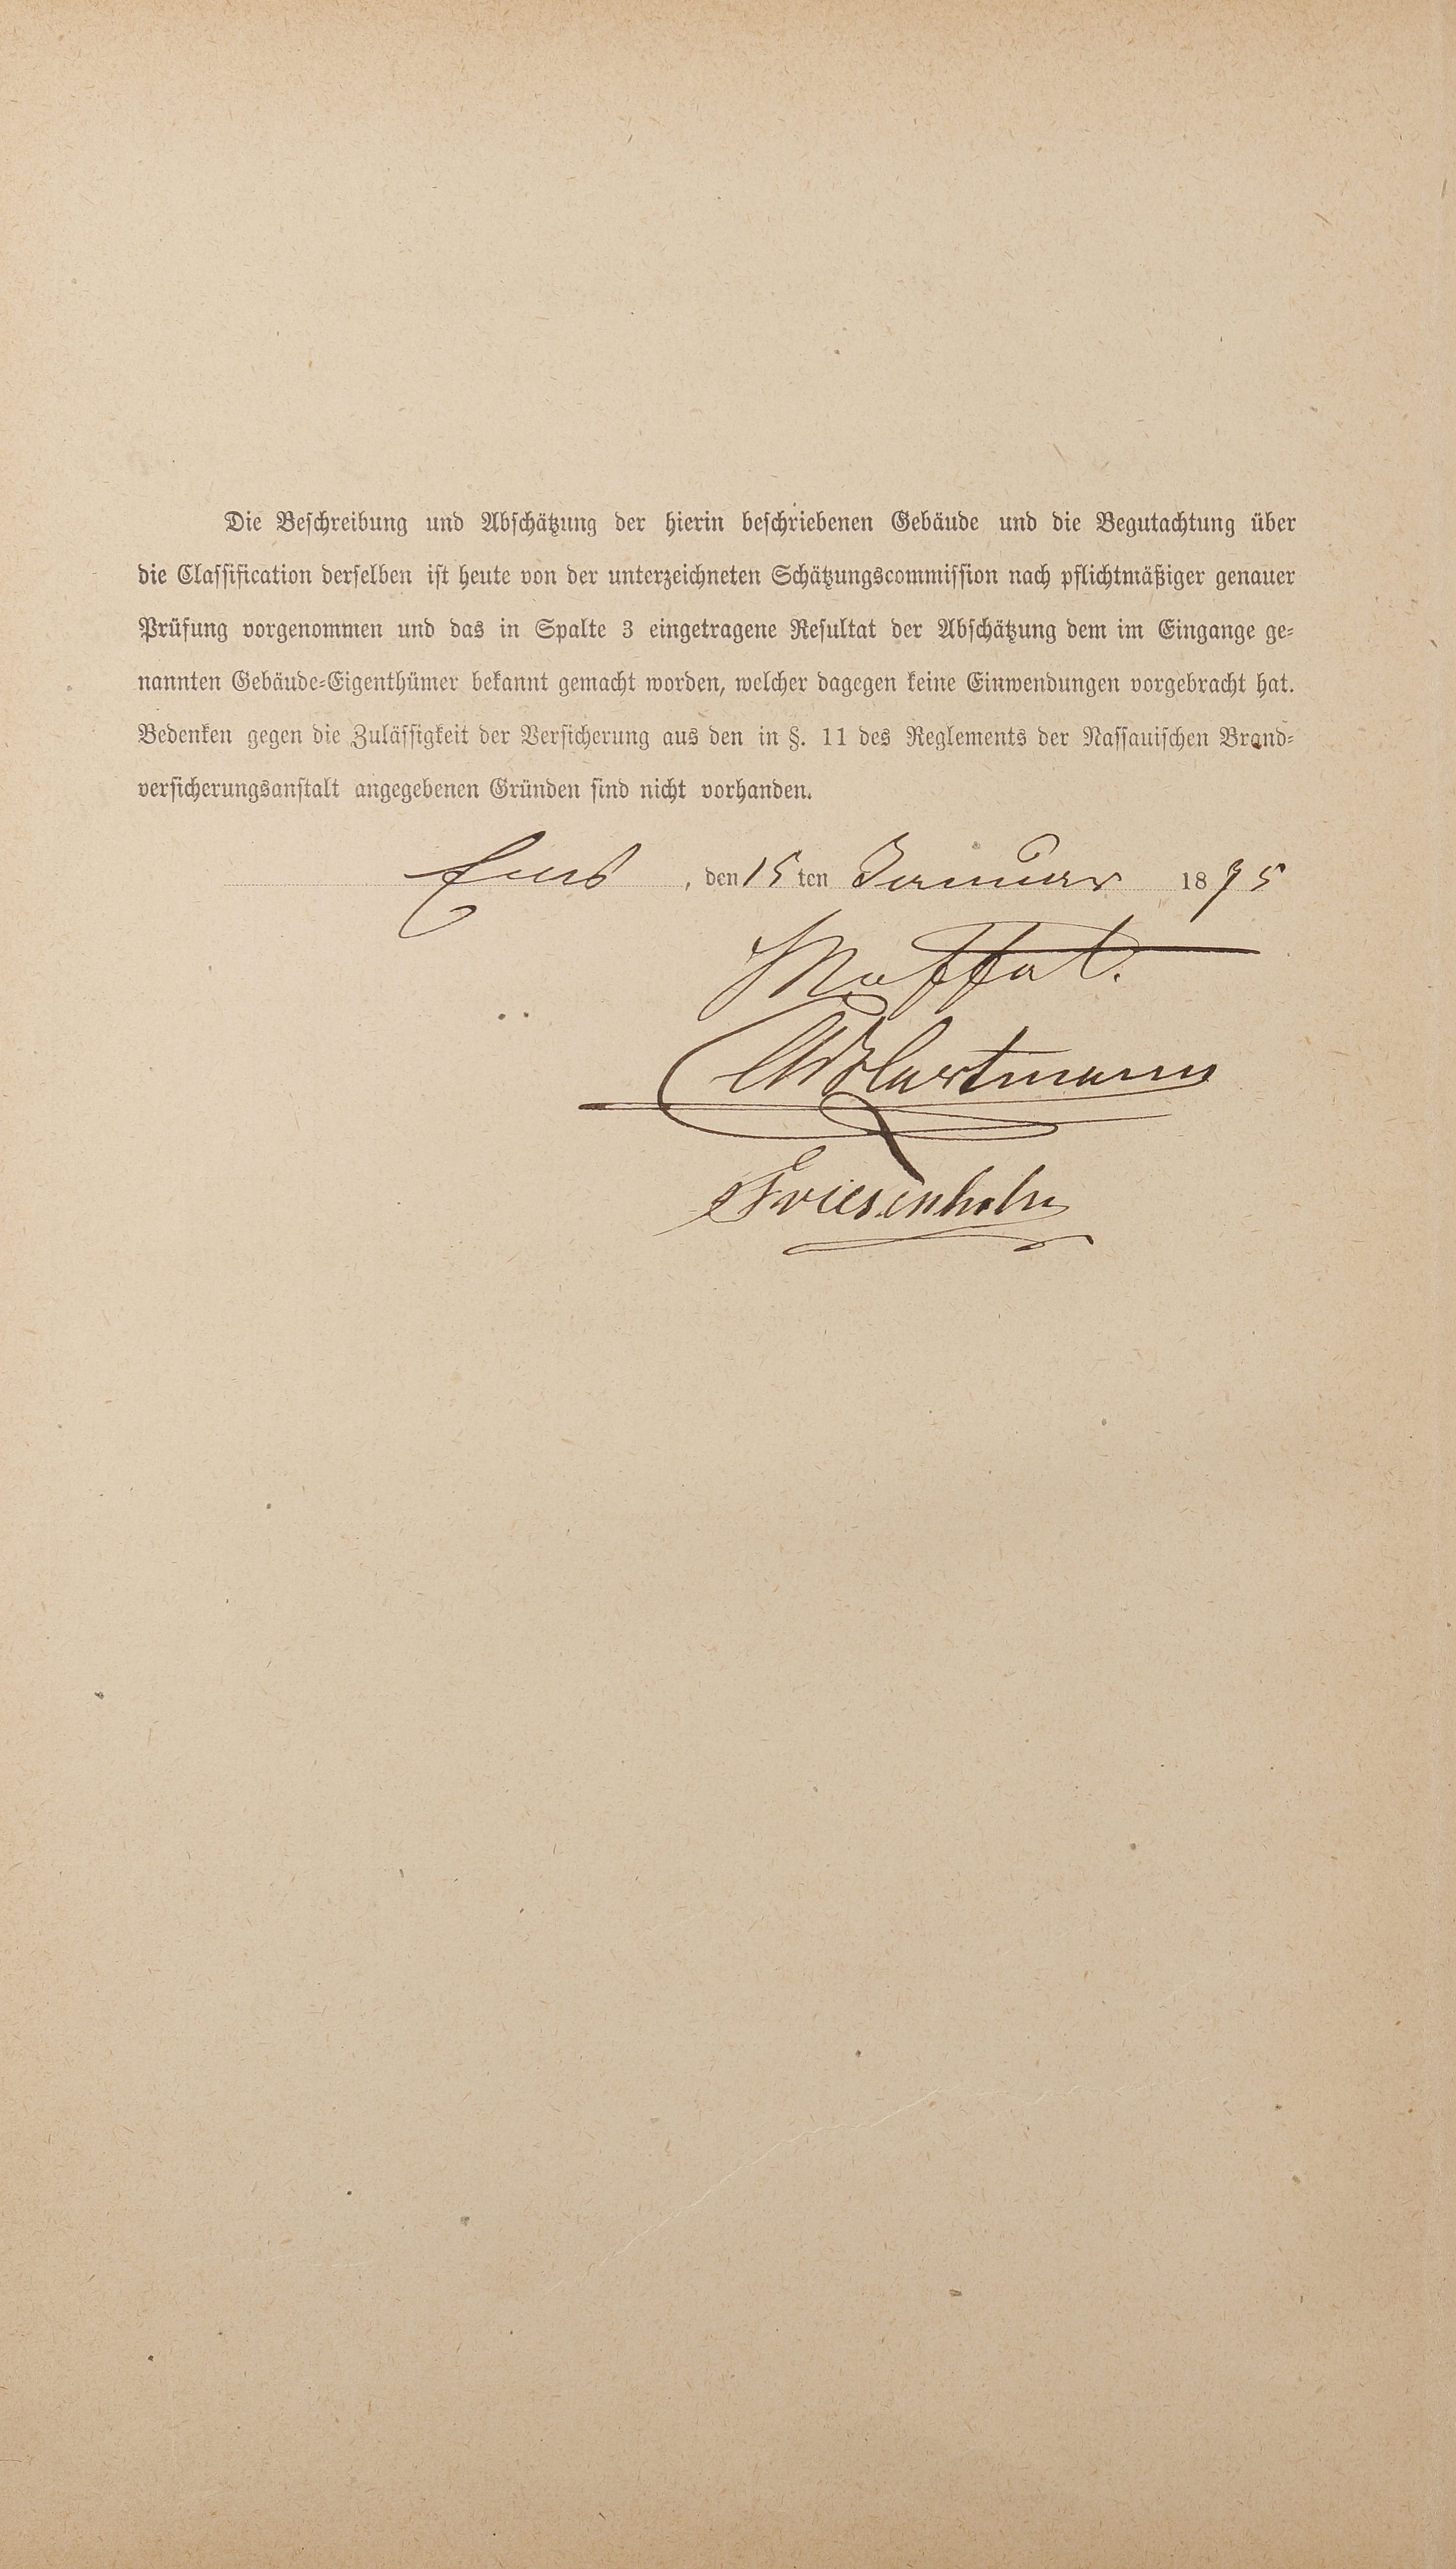 Die Beschreibung und Abschätzung der hierin beschriebenen Gebäude und die Begutachtung über
die Classification derselben ist heute von der unterzeichneten Schätzungscommission nach pflichtmäßiger genauer
Prüfung vorgenommen und das in Spalte 3 eingetragene Resultat der Abschätzung dem im Eingange ge-
nannten Gebäude-Eigenthümer bekannt gemacht worden, welcher dagegen keine Einwendungen vorgebracht hat.
Bedenken gegen die Zulässigkeit der Versicherung aus den in §. 11 des Reglements der Nassauischen Brand-
versicherungsanstalt angegebenen Gründen sind nicht vorhanden.
Ems, den 15 ten Januar 1895
Moffat.
Hartmann